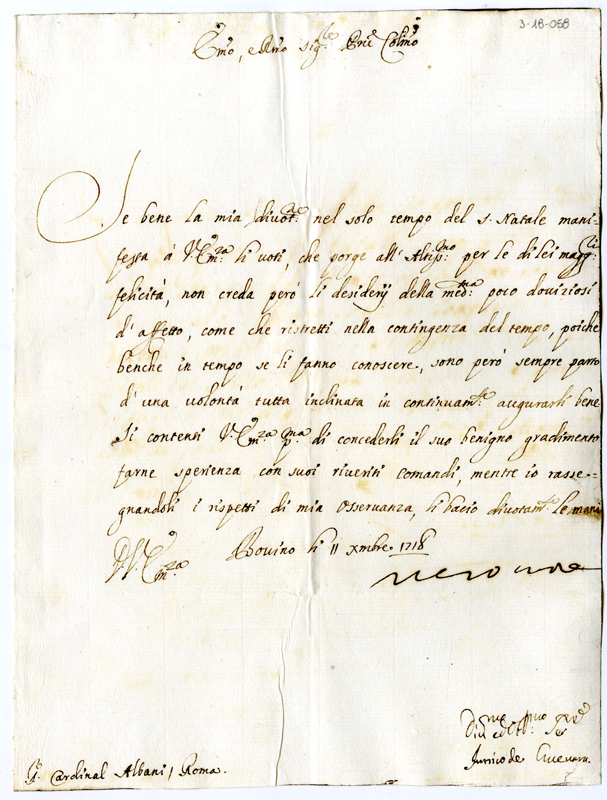 3-18-058
Emo, e Rmo Sigle Pne Colmo
Se bene la mia divotne nel solo tempo del S. Natale mani-
festa à V. Emza li voti, che porge all' Altissmo per le di lei maggli
felicità, non creda però li desiderij della medma poco doviziosi
d' affetto, come che ristretti nella contingenza del tempo, poiche
benche in tempo se li fanno conoscere, sono però sempre parto
d' una volontà tutta inclinata in continuamte augurarli bene
Si contenti V. Emza pma di concederli il suo benigno gradimento
farne sperienza con suoi riveriti comandi, mentre io rasse-
gnandoli i rispetti di mia osservanza, li bacio divotamte le mani
D. V. Emza
Bovino li 11 Xmbre 1718
Innico de Guevara
Cardinal Albani / Roma.